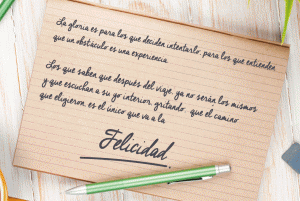 La gloria es para los que deciden intentarlo, para los que entienden
que un obstáculo es una experiencia.
Los que saben que después del viaje, ya no serán los mismos
y que escuchan a su yo interior, gritando, que el camino
que eligieron, es el único que va a la
Felicidad.